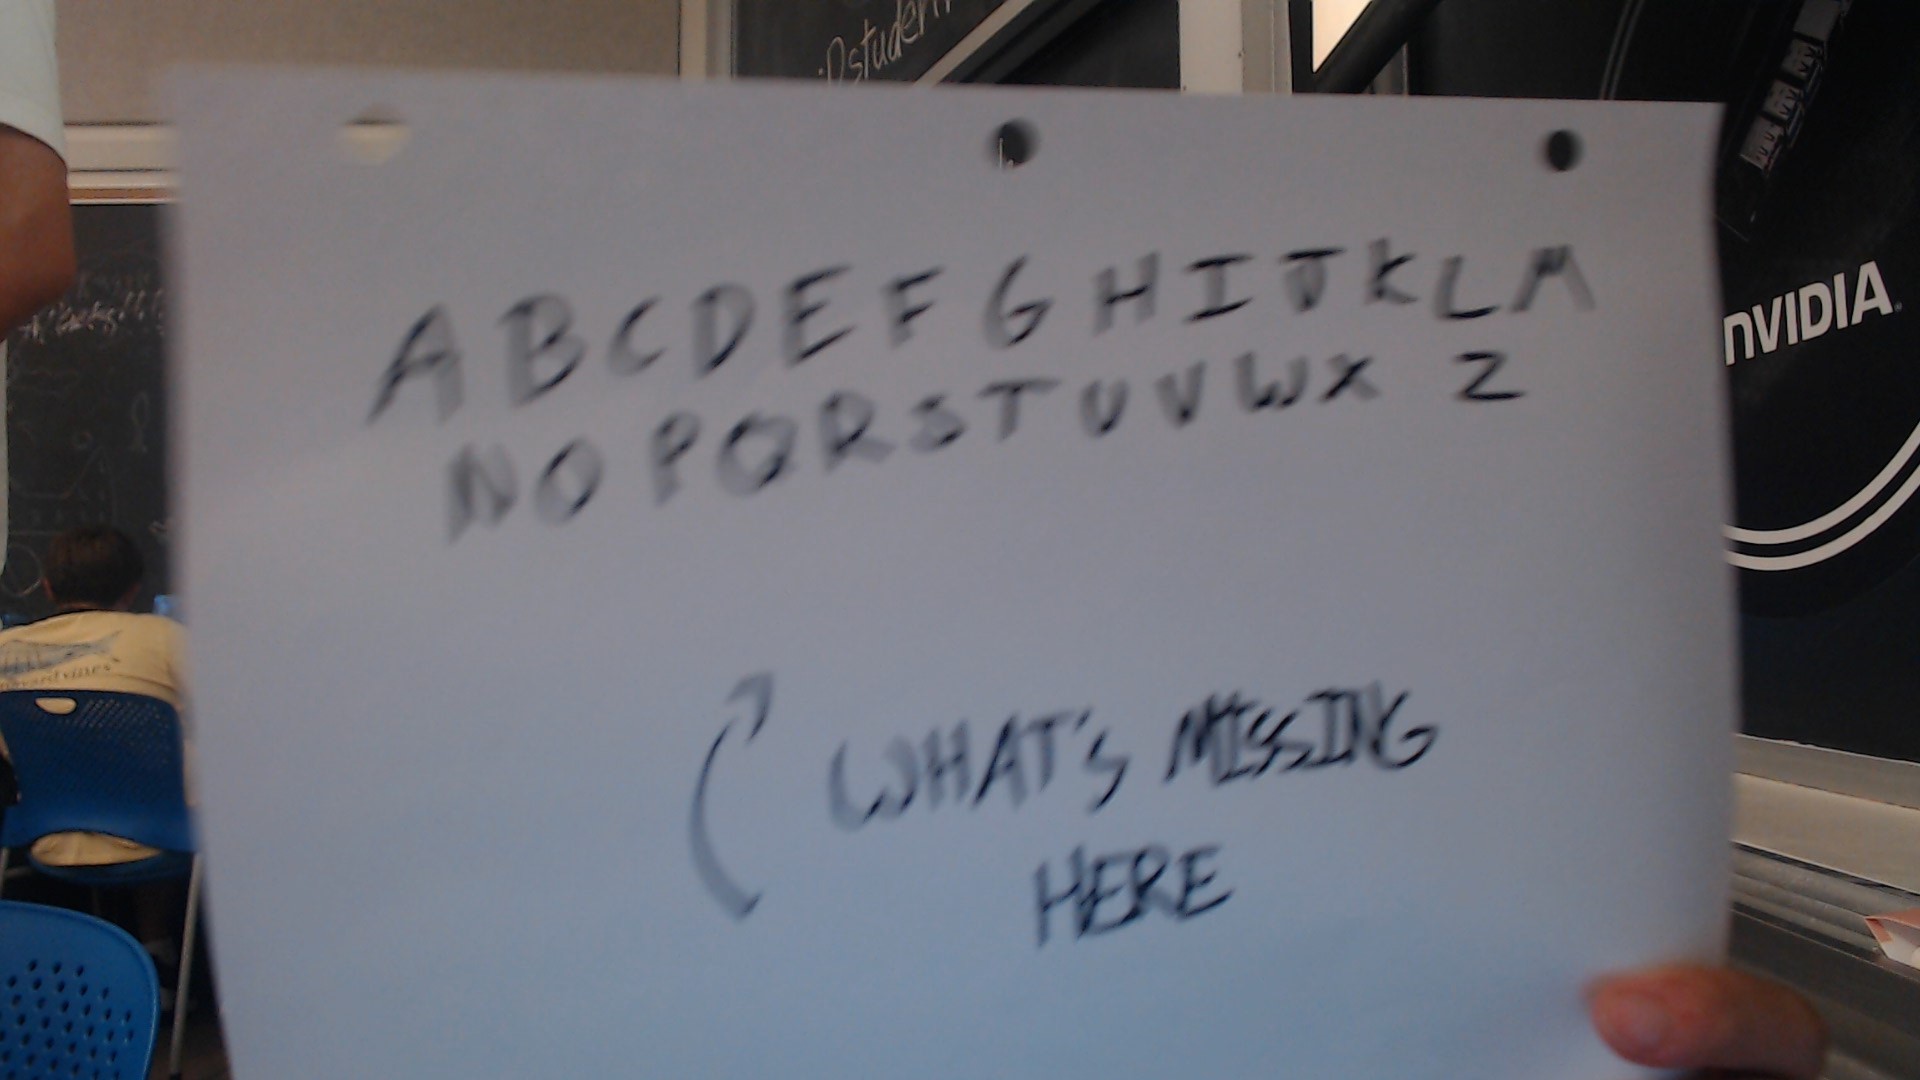 student
ABCDEFGHIJKLM
NOPQRSTUVWX Z
WHAT'S MISSING
HERE
NVIDIA